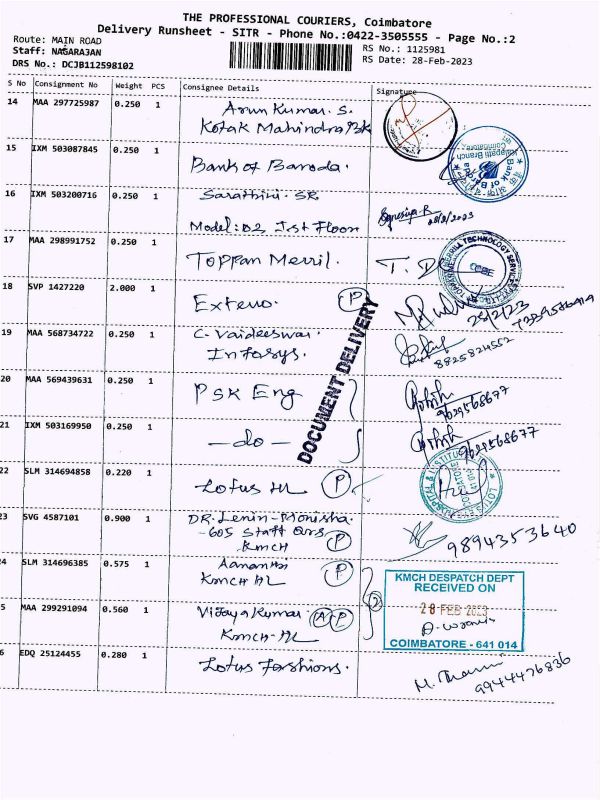 THE PROFESSIONAL COURIERS, Coimbatore
Delivery Runsheet - SITR - Phone No.:0422-3505555 - Page No.:2
Route: MAIN ROAD
Staff: NAGARAJAN
DRS No.: DCJB112598102
RS No.: 1125981
RS Date: 28-Feb-2023
S No Consignment No Weight PCS Consignee Details Signature
14 MAA 297725987 0.250 1 Arun Kumar. S.
Kotak Mahindra Bk
15 IXM 503087845 0.250 1 Bank of Baroda.
Bank of Baroda
Coimbatore
16 IXM 503200716 0.250 1 Sarathini. SR
Model: D2 Ist Floor
28/2/2023
17 MAA 298991752 0.250 1 Toppan Merril. T. D
MERRILL TECHNOLOGY SERVICES
CBE
18 SVP 1427220 2.000 1 Extero. P
28/2/23
DOCUMENT DELIVERY
19 MAA 568734722 0.250 1 C. Vaideeswar.
Infosys.
8825824552
20 MAA 569439631 0.250 1 PSK Eng
9629568677
21 IXM 503169950 0.250 1 - do -
9629568677
22 SLM 314694858 0.220 1 Lotus HL P
23 SVG 4587101 0.900 1 DR. Lenin - Monisha.
-605 Staff Qrs.
KMCH P
9894353640
24 SLM 314696385 0.575 1 Aananthi
KMCH HL P
KMCH DESPATCH DEPT
RECEIVED ON
28 FEB 2023
COIMBATORE - 641 014
5 MAA 299291094 0.560 1 Vijaya Kumar. A P
KMCH - HL
2
6 EDQ 25124455 0.280 1 Lotus Fashions.
9944476836